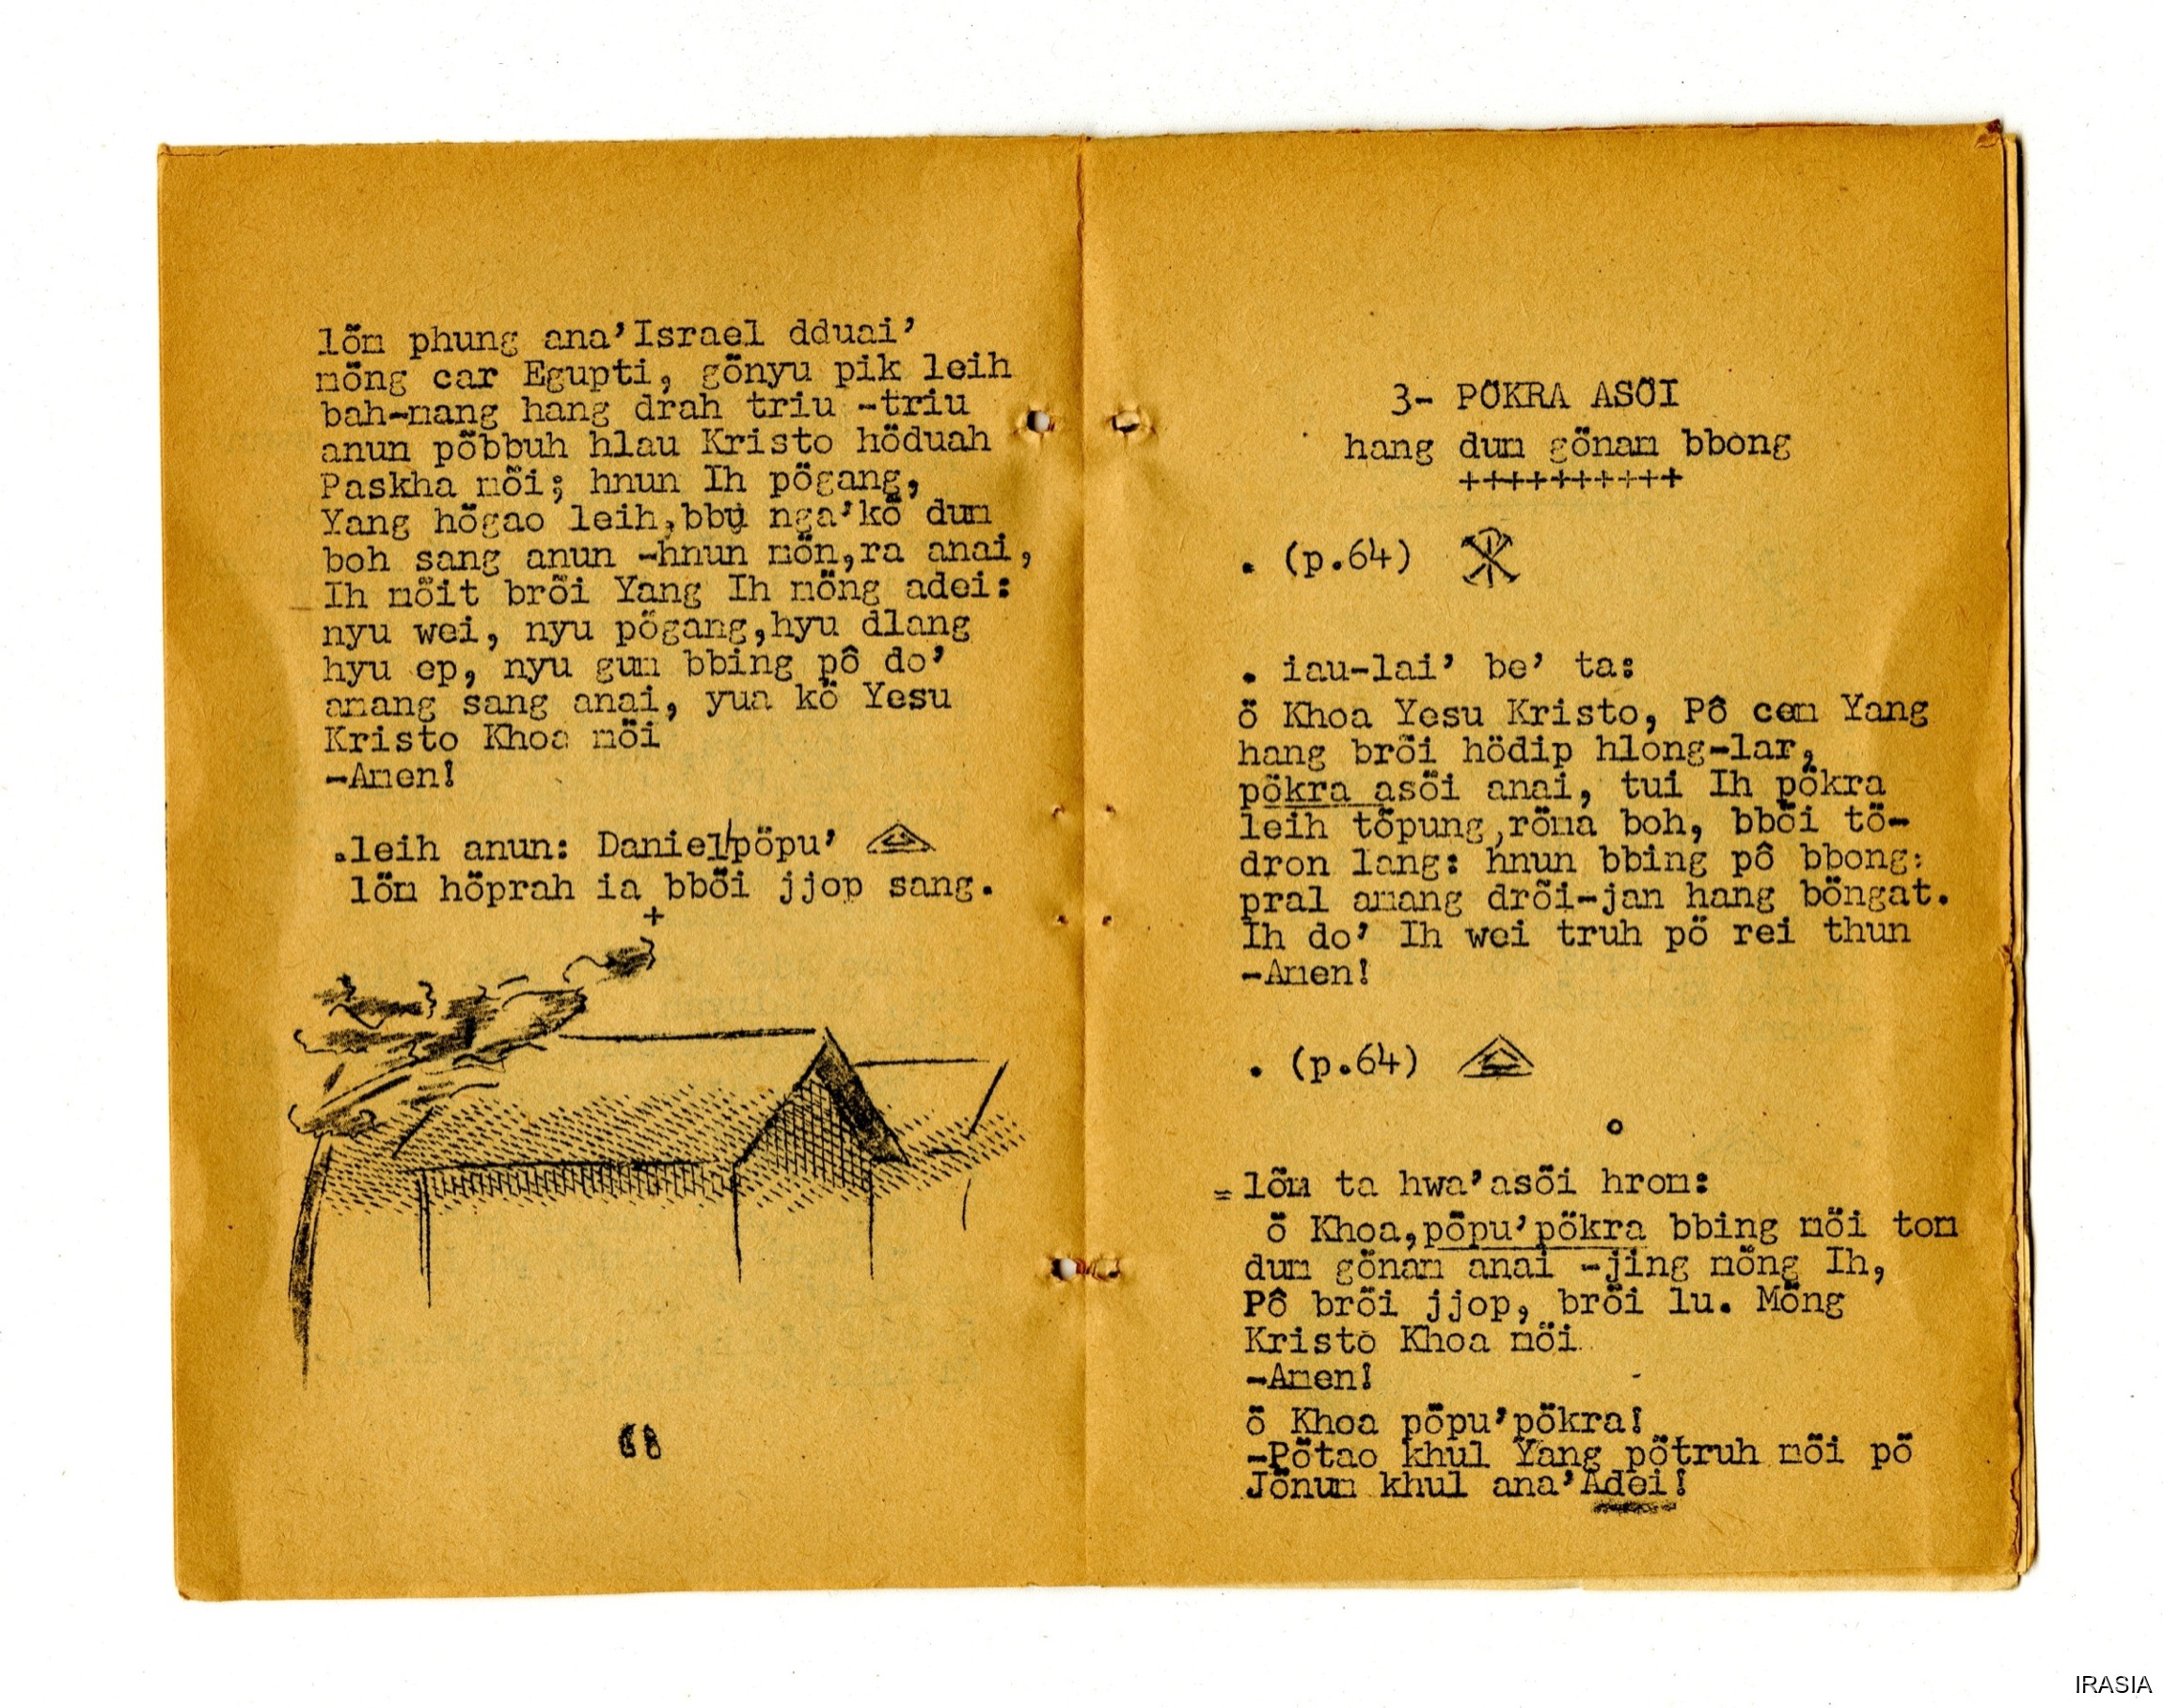 löm phung ana’Israel dduai’
möng car Egupti, gönyu pik leih
bah-mang hang drah triu -triu
anun pöbbuh hlau Kristo höduah
Paskha möi; hnun Ih pögang,
Yang högao leih,bbu nga’kö dum
boh sang anun -hnun mön,ra anai,
Ih möit bröi Yang Ih möng adei:
nyu wei, nyu pögang,hyu dlang
hyu ep, nyu gum bbing pô do’
amang sang anai, yua kö Yesu
Kristo Khoa möi
-Amen!
.leih anun: Daniel/pöpu’
löm höprah ia bböi jjop sang.
+
68
3- PÖKRA ASÖI
hang dum gönam bbong
++++++++++
. (p.64)
. iau-lai’ be’ ta:
ö Khoa Yesu Kristo, Pô cem Yang
hang bröi hödip hlong-lar,
pökra asöi anai, tui Ih pökra
leih töpung,röma boh, bböi tö-
dron lang: hnun bbing pô bbong:
pral amang dröi-jan hang böngat.
Ih do’ Ih wei truh pö rei thun
-Amen!
. (p.64)
o
=löm ta hwa’asöi hrom:
ö Khoa,pöpu’pökra bbing möi tom
dum gönam anai -jing möng Ih,
Pô bröi jjop, bröi lu. Möng
Kristo Khoa möi.
-Amen!
ö Khoa pöpu’pökra!
-Pötao khul Yang pötruh möi pö
Jönum khul ana’Adei!
IRASIA